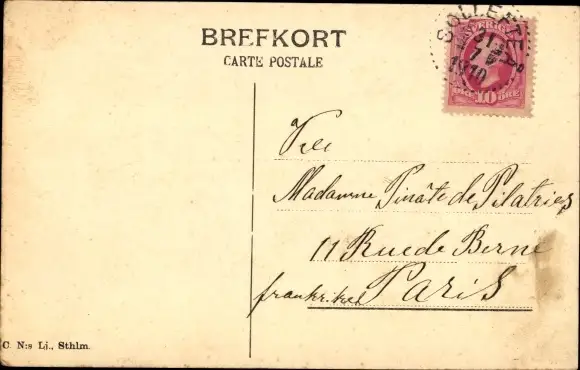 BREFKORT
CARTE POSTALE
SVERIGE
10 ÖRE
31
7
1910
Madame Pinâte de Pilatries
11 Rue de Berne
frankrike PARIS
C. N:s Lj., Sthlm.